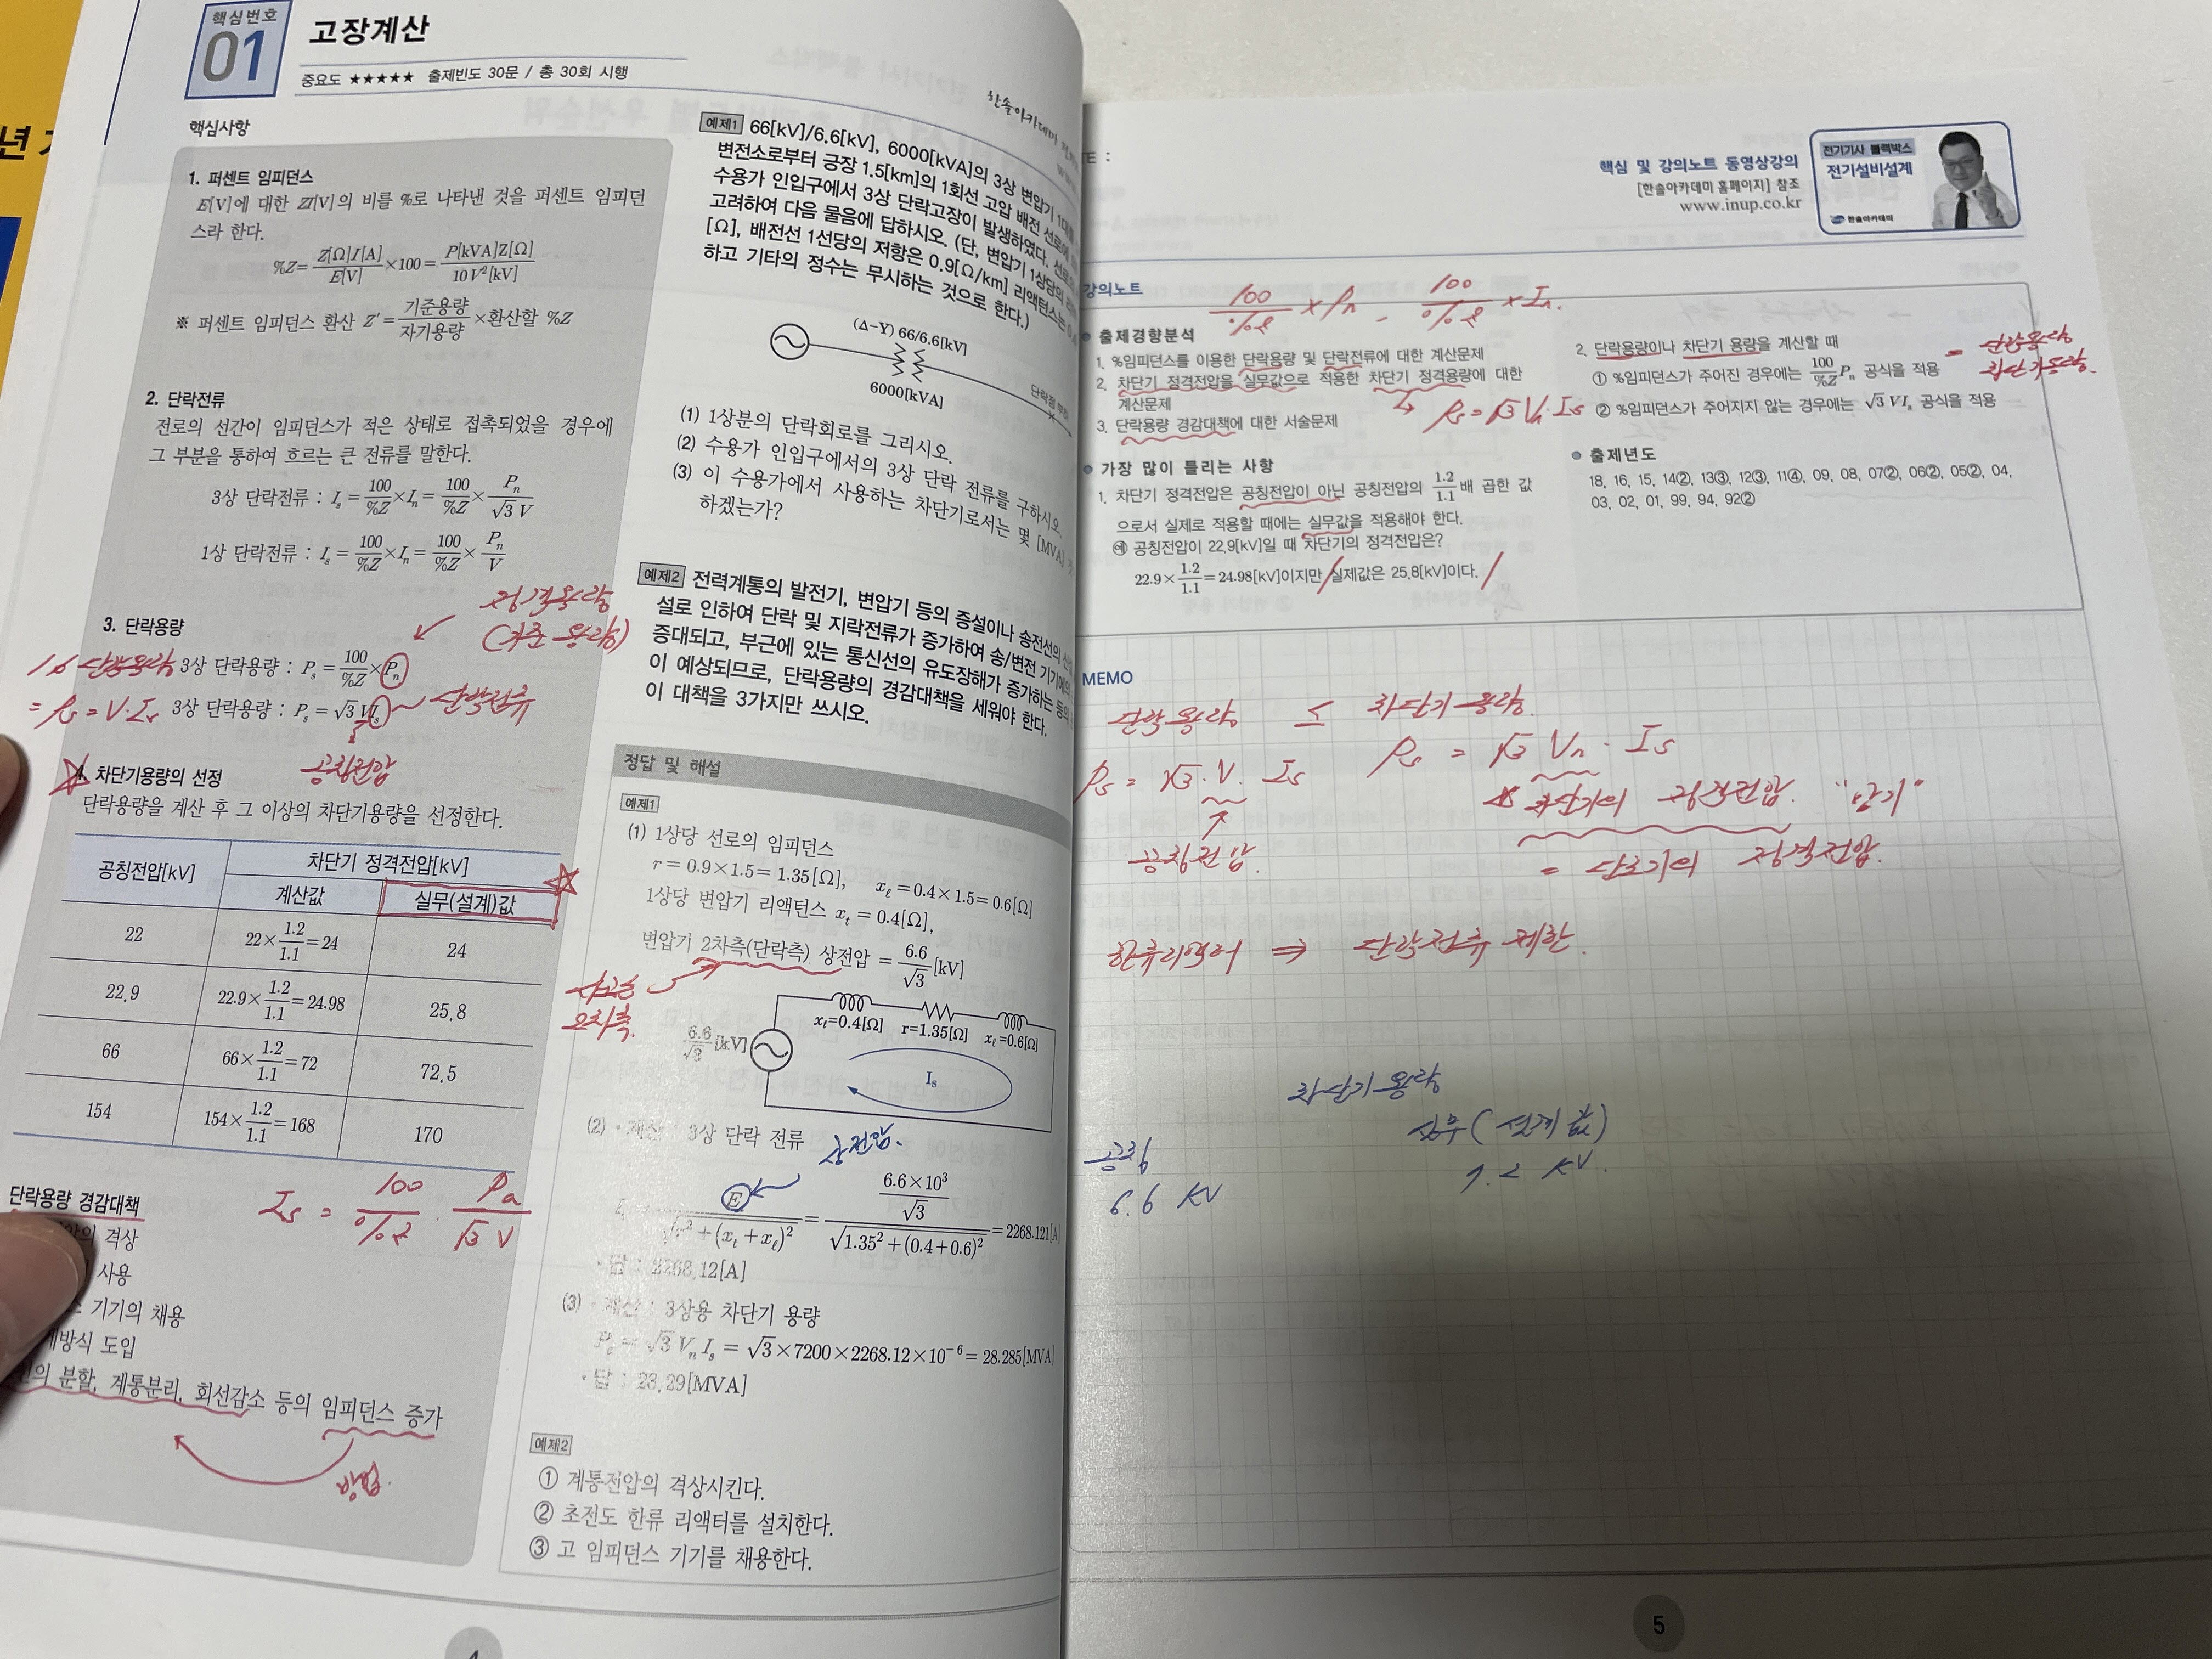 년
핵심번호
01
고장계산
중요도 ★★★★★ 출제빈도 30문 / 총 30회 시행
한솔아카데미
핵심사항
1. 퍼센트 임피던스
E[V]에 대한 ZI[V]의 비를 %로 나타낸 것을 퍼센트 임피던
스라 한다.
%Z= Z[Ω]I[A] / E[V] ×100 = P[kVA]Z[Ω] / 10V²[kV]
※ 퍼센트 임피던스 환산 Z' = 기준용량 / 자기용량 ×환산할 %Z
2. 단락전류
전로의 선간이 임피던스가 적은 상태로 접촉되었을 경우에
그 부분을 통하여 흐르는 큰 전류를 말한다.
3상 단락전류 : Is = 100/%Z × In = 100/%Z × Pn/√3 V
1상 단락전류 : Is = 100/%Z × In = 100/%Z × Pn/V
정격용량
(기준용량)
3. 단락용량
1상 단락용량
3상 단락용량 : Ps = 100/%Z × Pn
= Ps = V·Is
3상 단락용량 : Ps = √3 VIs
단락전류
공칭전압
4. 차단기용량의 선정
단락용량을 계산 후 그 이상의 차단기용량을 선정한다.
공칭전압[kV] 차단기 정격전압[kV]
계산값 실무(설계)값
22 22× 1.2/1.1 =24 24
22.9 22.9× 1.2/1.1 =24.98 25.8
66 66× 1.2/1.1 =72 72.5
154 154× 1.2/1.1 =168 170
단락용량 경감대책
Is = 100/%Z · Pn/√3 V
격상
사용
기기의 채용
방식 도입
분할, 계통분리, 회선감소 등의 임피던스 증가
방법.
예제1 66[kV]/6.6[kV], 6000[kVA]의 3상 변압기 1대를
변전소로부터 긍장 1.5[km]의 1회선 고압 배전 선로에
수용가 인입구에서 3상 단락고장이 발생하였다.
고려하여 다음 물음에 답하시오. (단, 변압기 1상당의
[Ω], 배전선 1선당의 저항은 0.9[Ω/km] 리액턴스는
하고 기타의 정수는 무시하는 것으로 한다.)
(Δ-Y) 66/6.6[kV]
6000[kVA]
단락점
(1) 1상분의 단락회로를 그리시오.
(2) 수용가 인입구에서의 3상 단락 전류를 구하시오.
(3) 이 수용가에서 사용하는 차단기로서는 몇 [MVA]
하겠는가?
예제2 전력계통의 발전기, 변압기 등의 증설이나 송전선의
설로 인하여 단락 및 지락전류가 증가하여 송/변전 기기에의
증대되고, 부근에 있는 통신선의 유도장해가 증가하는 등의
이 예상되므로, 단락용량의 경감대책을 세워야 한다.
이 대책을 3가지만 쓰시오.
정답 및 해설
예제1
(1) 1상당 선로의 임피던스
r = 0.9×1.5=1.35[Ω], xℓ = 0.4×1.5=0.6[Ω]
1상당 변압기 리액턴스 xt = 0.4[Ω],
변압기 2차측(단락측) 상전압 = 6.6/√3 [kV]
사고는
2차측.
xt=0.4[Ω] r=1.35[Ω] xℓ=0.6[Ω]
6.6/√3 [kV]
Is
(2) · 계산 : 3상 단락 전류
상전압.
Is = E / √(r²+(xt+xℓ)²) = (6.6×10³/√3) / √(1.35²+(0.4+0.6)²) = 2268.121[A]
· 답 : 2268.12[A]
(3) · 계산 : 3상용 차단기 용량
Ps = √3 Vn Is = √3×7200×2268.12×10⁻⁶ = 28.285[MVA]
· 답 : 28.29[MVA]
예제2
① 계통전압의 격상시킨다.
② 초전도 한류 리액터를 설치한다.
③ 고 임피던스 기기를 채용한다.
핵심 및 강의노트 동영상강의
[한솔아카데미 홈페이지] 참조
www.inup.co.kr
전기기사 블랙박스
전기설비설계
한솔아카데미
강의노트
100/%Z × Pn - 100/%Z × In.
출제경향분석
1. %임피던스를 이용한 단락용량 및 단락전류에 대한 계산문제
2. 차단기 정격전압을 실무값으로 적용한 차단기 정격용량에 대한
계산문제
Ps = √3 Vn · Is
3. 단락용량 경감대책에 대한 서술문제
가장 많이 틀리는 사항
1. 차단기 정격전압은 공칭전압이 아닌 공칭전압의 1.2/1.1 배 곱한 값
으로서 실제로 적용할 때에는 실무값을 적용해야 한다.
예 공칭전압이 22.9[kV]일 때 차단기의 정격전압은?
22.9× 1.2/1.1 =24.98[kV]이지만 실제값은 25.8[kV]이다.
2. 단락용량이나 차단기 용량을 계산할 때
= 단락용량
차단기용량.
① %임피던스가 주어진 경우에는 100/%Z Pn 공식을 적용
② %임피던스가 주어지지 않는 경우에는 √3 VIs 공식을 적용
출제년도
18, 16, 15, 14②, 13③, 12③, 11④, 09, 08, 07②, 06②, 05②, 04,
03, 02, 01, 99, 94, 92②
MEMO
단락용량 ≤ 차단기용량.
Ps = √3 · V · Is
Ps = √3 Vn · Is
공칭전압.
☆ 차단기의 정격전압. "암기"
= 단로기의 정격전압.
한류리액터 ⇒ 단락전류 제한.
차단기용량
공칭 실무(설계값)
6.6 KV 7.2 KV.
5